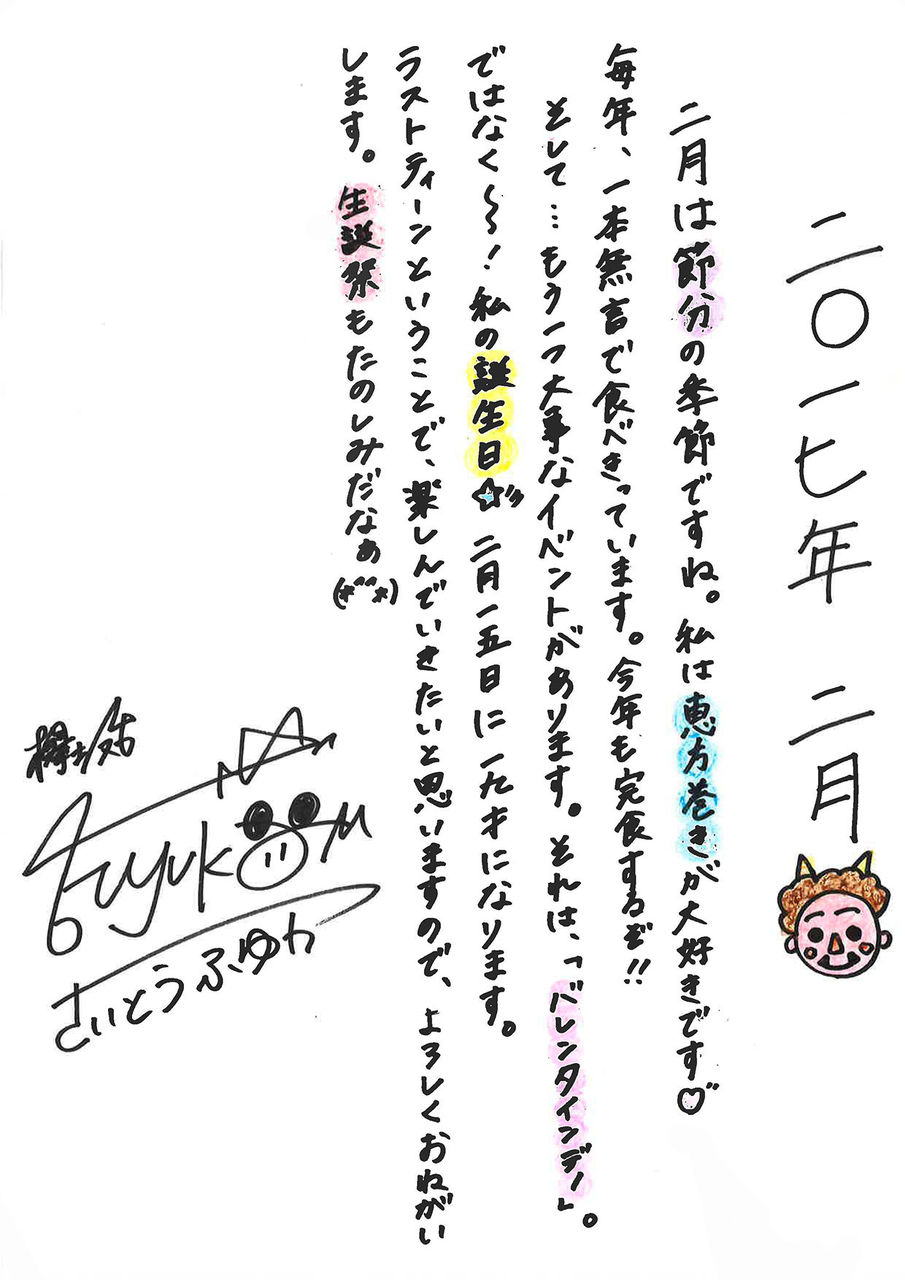 二〇一七年 二月
二月は節分の季節ですね。私は恵方巻きが大好きです♡
毎年、一本無言で食べきっています。今年も完食するぞ!!
そして…もう一つ大事なイベントがあります。それは、「バレンタインデー」。
ではなく〜〜!私の誕生日☆ 二月一五日に一九才になります。
ラストティーンということで、楽しんでいきたいと思いますので、よろしくおねがい
します。生誕祭もたのしみだなぁ(*^^*)
欅坂46
Fuyuka
さいとうふゆか